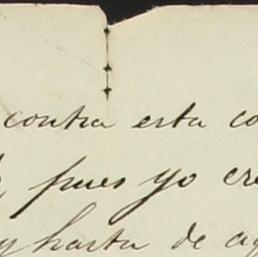 contra esta co
pues yo cre
y hasta de ag